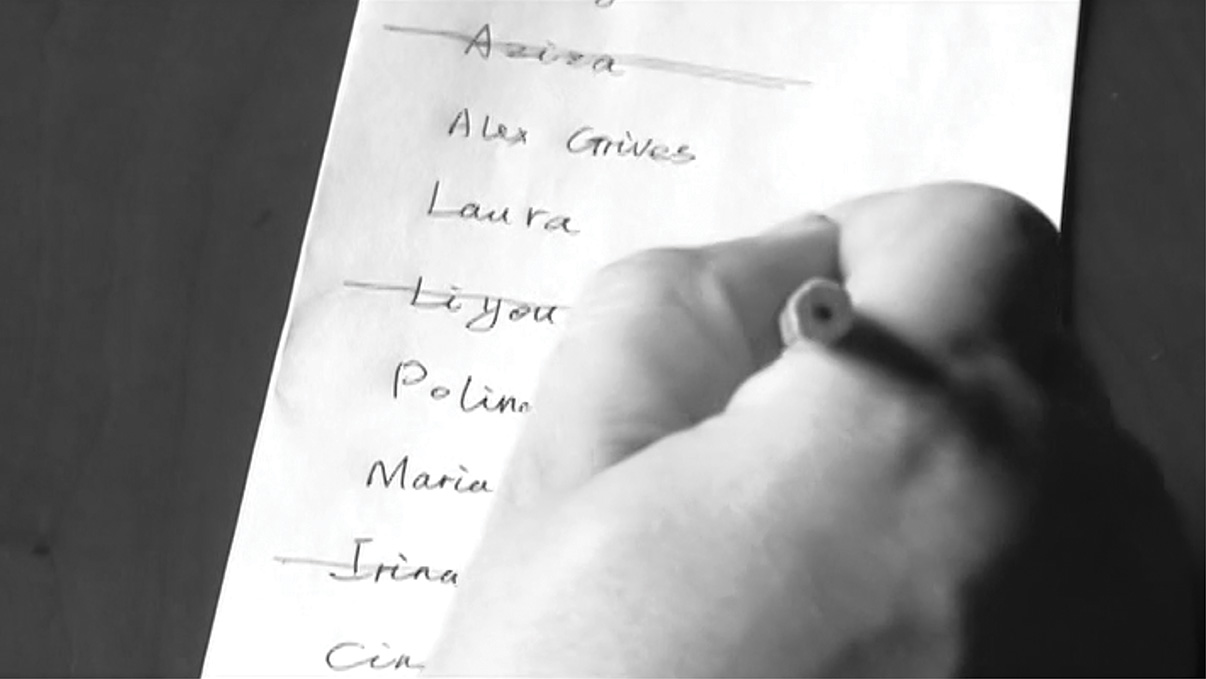 Aziza
Alex Grives
Laura
Liyou
Polin
Maria
Irina
Cin